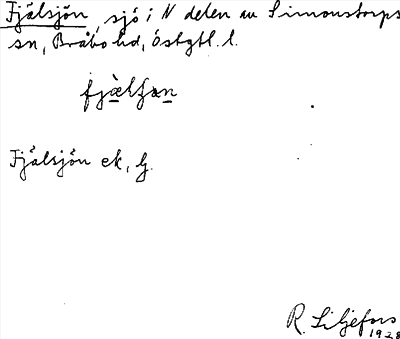 Fjälsjön, sjö i N delen av Simonstorps
sn, Bråbo hd, Östgtl. l.
Fjälsjön ek, G.
R. Liljefors
1928